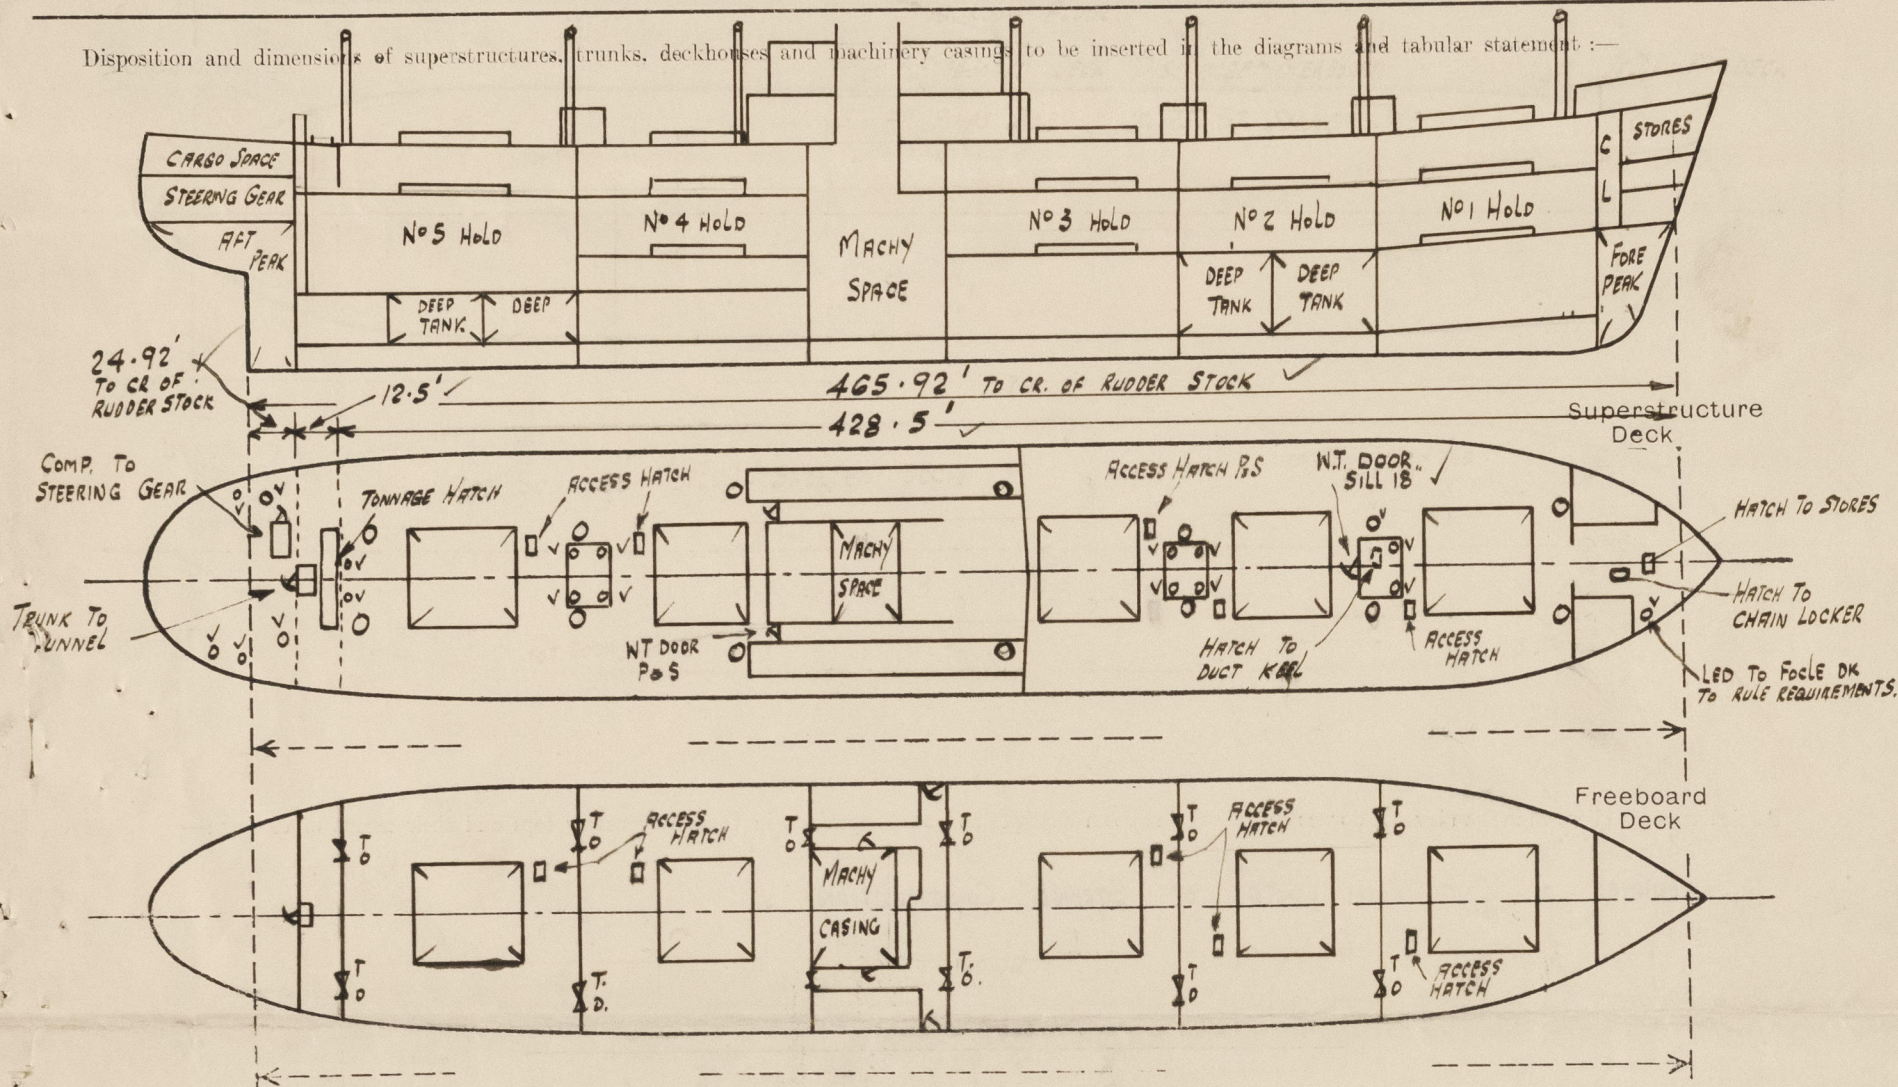 Disposition and dimensions of superstructures, trunks, deckhouses and machinery casings to be inserted in the diagrams and tabular statement :—
CARGO SPACE
STEERING GEAR
AFT
PEAK
No 5 HOLD
No 4 HOLD
MACHY
SPACE
No 3 HOLD
No 2 HOLD
No 1 HOLD
C
L
STORES
DEEP
TANK
DEEP
DEEP
TANK
DEEP
TANK
FORE
PEAK
24.92'
TO CR OF
RUDDER STOCK
12.5'
465.92' TO CR. OF RUDDER STOCK
428.5'
Superstructure
Deck
COMP. TO
STEERING GEAR
TONNAGE HATCH
ACCESS HATCH
ACCESS HATCH P&S
W.T. DOOR
SILL 18"
HATCH TO STORES
MACHY
SPACE
TRUNK TO
TUNNEL
WT DOOR
P&S
HATCH TO
DUCT KEEL
ACCESS
HATCH
HATCH TO
CHAIN LOCKER
LED TO FOCLE DK
TO RULE REQUIREMENTS.
Freeboard
Deck
T
O
T
O
ACCESS
HATCH
T
O
T
O
T
O
ACCESS
HATCH
T
O
MACHY
CASING
T
O
T.
O.
T.
O.
T
O
T
O
ACCESS
HATCH